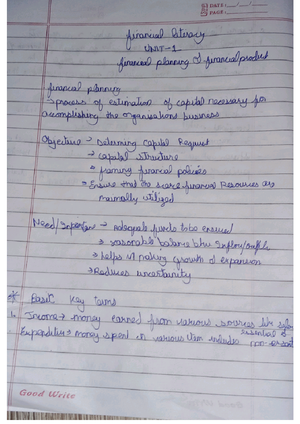 DATE: / /
PAGE:
financial literacy
UNIT-1
financial planning & financial product
financial planning
process of estimation of capital necessary for
accomplishing the organisations business
Objective → Determing capital Requert
→ capital structure
→ framing financial policies
→ Ensure that the scare financial Resources are
maximally utilized
Need/Importance → Adequate funds to be ensured
→ reasonable balance btw Inflow/outflow
→ helps in making growth & expansion
→ Reduces uncertainity
Basic key terms
1. Income → money earned from various sources like
Expenditure → money spent on various item includes essential & non-
Good Write